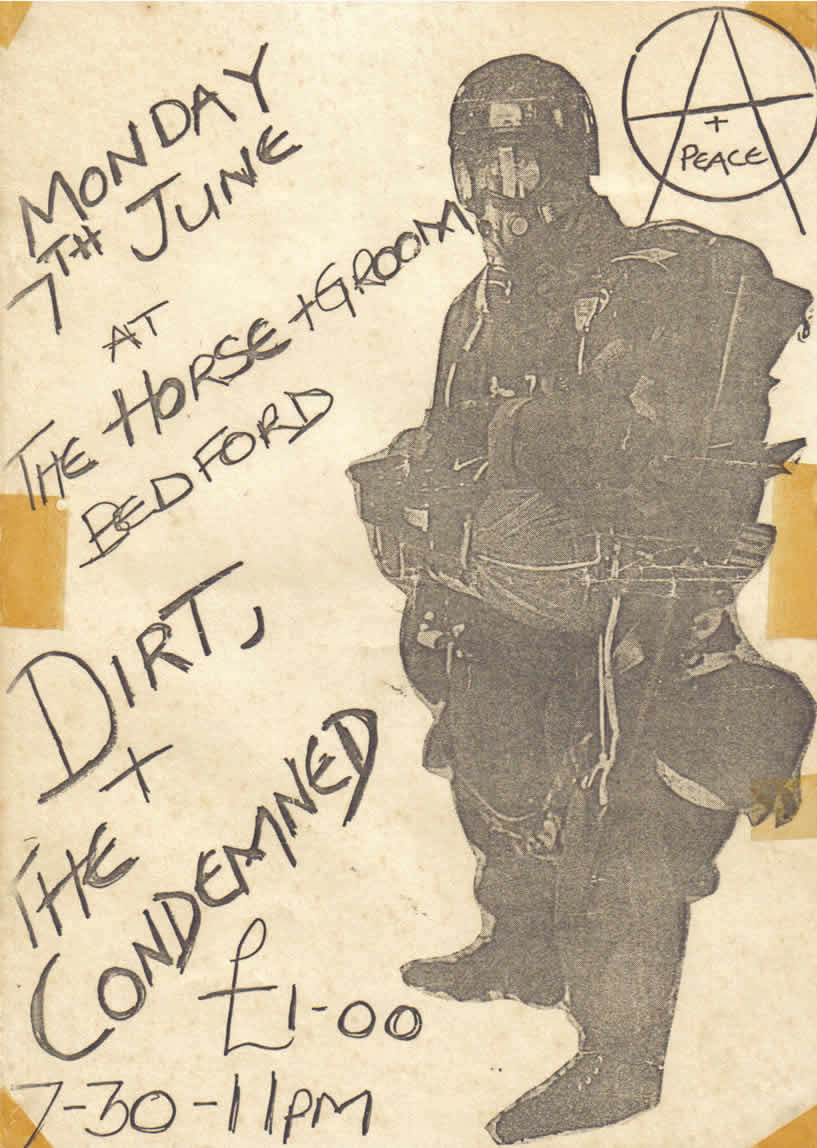 MONDAY
7TH JUNE
AT
THE HORSE + GROOM
BEDFORD
DIRT,
+
THE
CONDEMNED
£1-00
7-30-11PM
A
+
PEACE